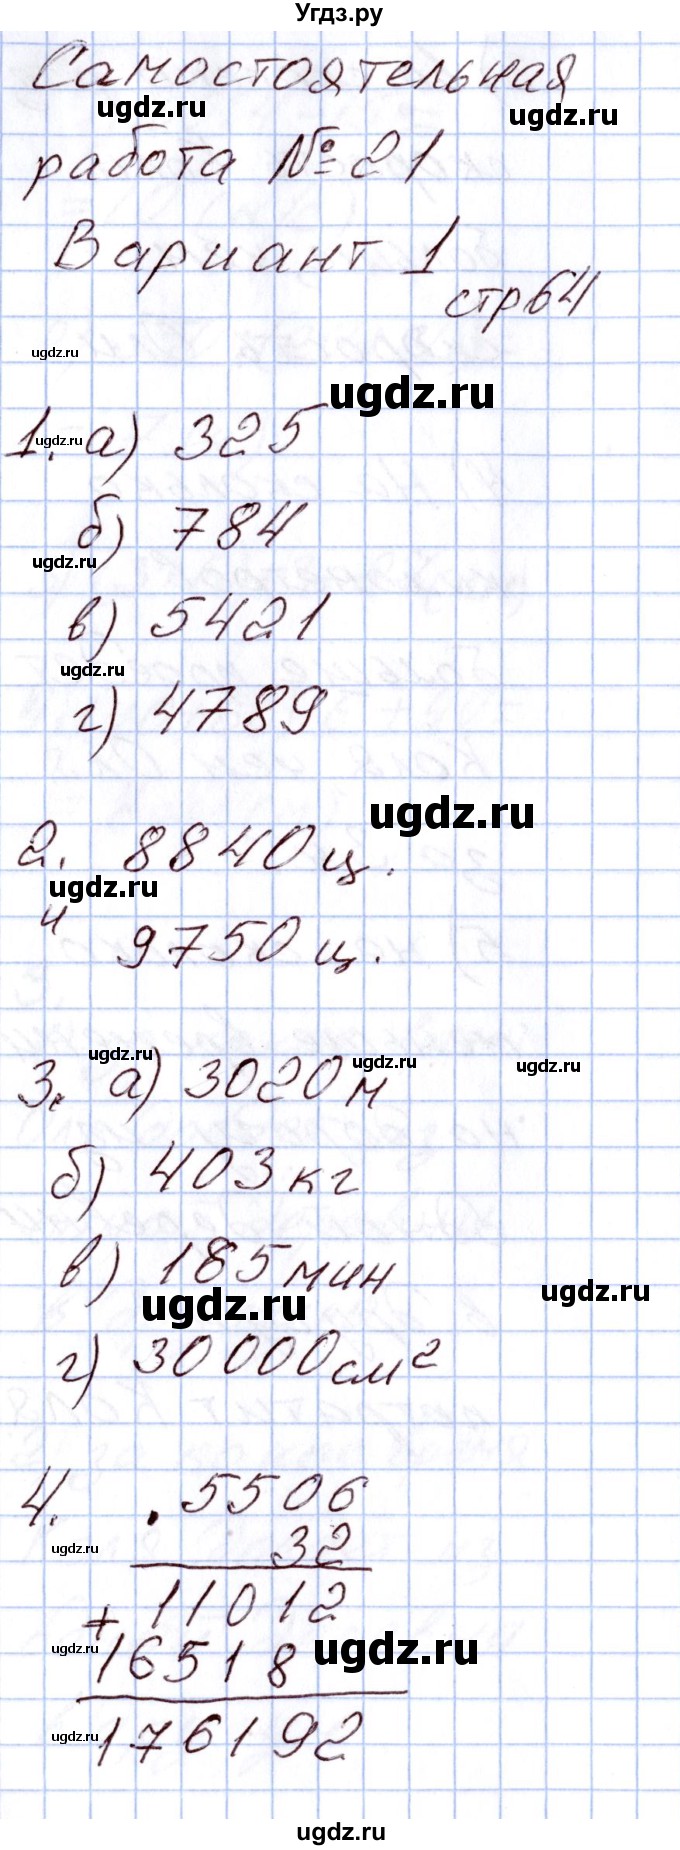 Угдз.ру
Самостоятельная
ugdz.ru
ugdz.ru
работа № 21
Вариант 1
стр 64
ugdz.ru
ugdz.ru
1. а) 325
ugdz.ru
б) 784
ugdz.ru
в) 5421
ugdz.ru
г) 4789
ugdz.ru
2. 8840 ц.
ugdz.ru
и 9750 ц.
ugdz.ru
ugdz.ru
ugdz.ru
3. а) 3020 м
б) 403 кг
в) 185 мин
ugdz.ru
ugdz.ru
г) 30000 см²
4. . 5506
32
ugdz.ru
+ 11012
ugdz.ru
ugdz.ru
16518
176192
ugdz.ru
ugdz.ru